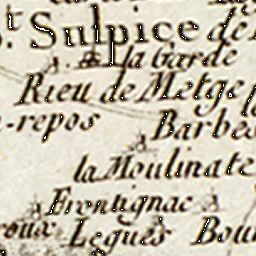 t Sulpice de
la Garde
Rieu de Metge
-repos Barbes
la Moulinate
Frontignac
roux Legués Bou